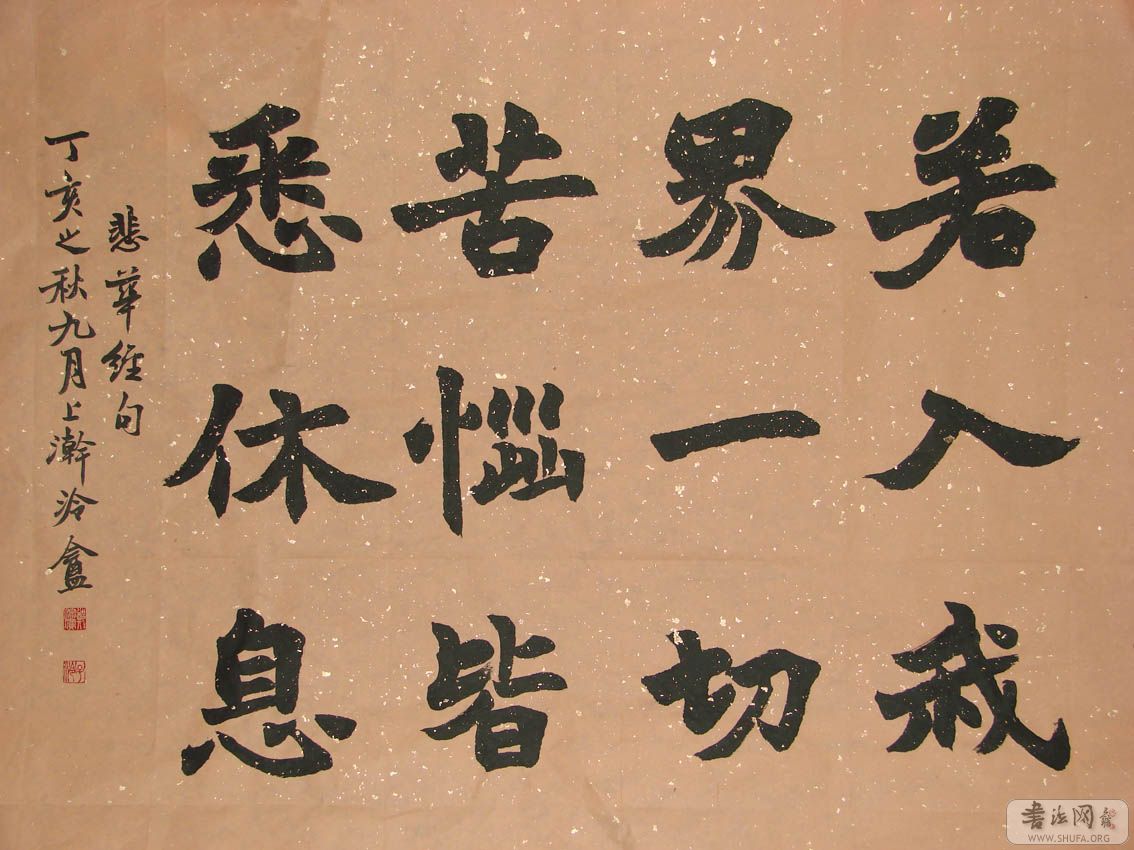 若入我
界一切
苦惱皆
悉休息
悲華經句
丁亥之秋九月上澣泠盦
書法网
WWW.SHUFA.ORG